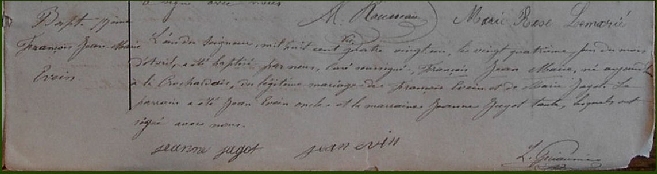 M. Rousseau Marie Rose Lemarié
Bapt.
François Jean Marie
Evain
L'an du Seigneur mil huit cent quatre vingt un, le vingt quatrième jour du mois
d'Avril, a été baptisé par nous, curé soussigné, François Jean Marie, né aujourd'
du légitime mariage de François Evain et de Jagot. Le
parrain a été Jean Evain oncle et la marraine Jeanne Jagot tante, lesquels ont
signé avec nous.
jeanne jagot jean evin